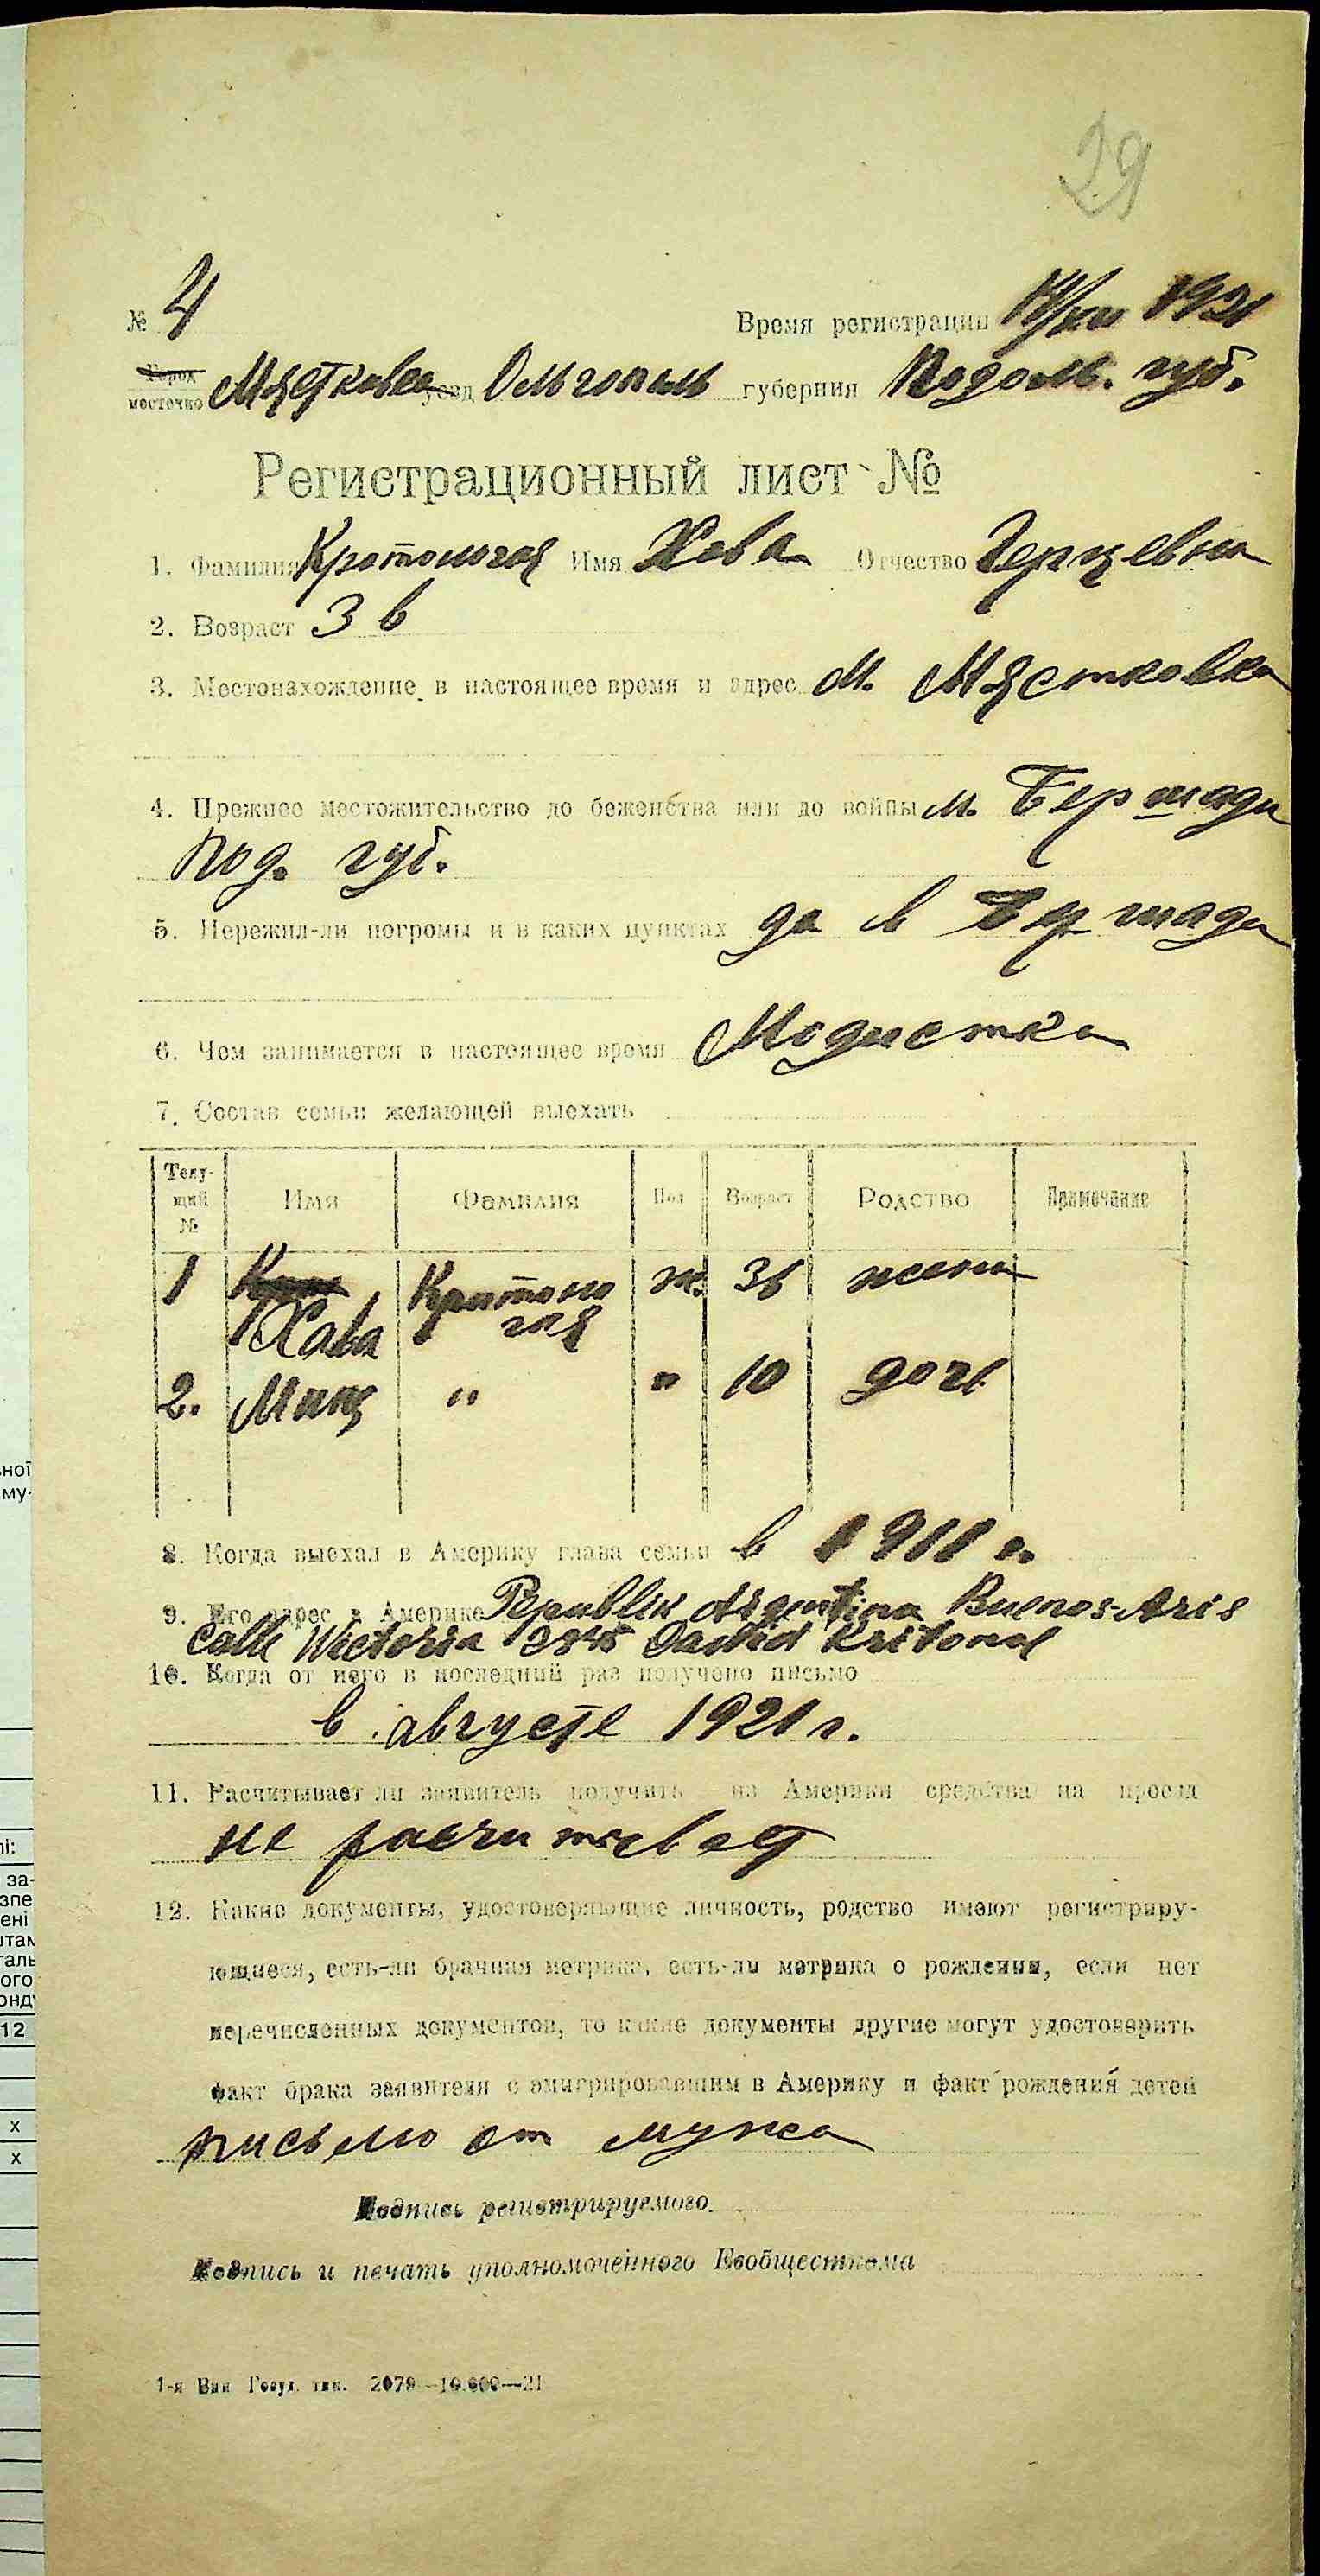 29
№ 4 Время регистрации 1921
Город
местечко Мястковка уезд Ольгополь губерния Подоль. губ.
Регистрационный лист №
1. Фамилия Имя Хава Отчество Герцевна
2. Возраст 36
3. Местонахождение в настоящее время и адрес М. Мястковка
4. Прежнее местожительство до беженства или до войны м. Бершади
Под. губ.
5. Пережил-ли погромы и в каких пунктах да в Бершади
6. Чем занимается в настоящее время Модистка
7. Состав семьи желающей выехать
Теку-
щий
№ Имя Фамилия Пол Возраст Родство Примечание
1 Хава ж. 36 жена
2. Миня " " 10 дочь
8. Когда выехал в Америку глава семьи в 1911 г.
9. Его адрес в Америке Republik Argentina Buenos-Aris
Calle Wictoria David Kritonog
10. Когда от него в последний раз получено письмо
в августе 1921 г.
11. Расчитывает ли заявитель получить из Америки средства на проезд
не расчитывает
12. Какие документы, удостоверяющие личность, родство имеют регистриру-
ющиеся, есть-ли брачная метрика, есть-ли метрика о рождении, если нет
перечисленных документов, то какие документы другие могут удостоверить
факт брака заявителя с эмигрировавшим в Америку и факт рождения детей
письмо от мужа
Подпись регистрируемого.
Подпись и печать уполномоченного Евобщесткома
1-я Вин Госуд. тип. 2079—10.000—21
ної
му-
і:
за-
зпе
ені
штам
галь
ого
онду
12
х
х